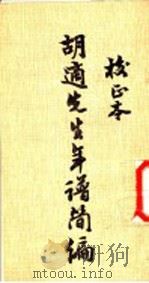 校正本
胡適先生年譜简编
搜狗
mtoou.info